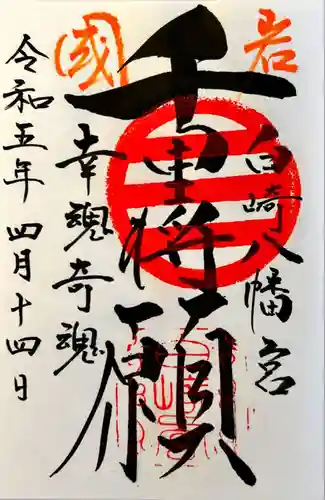 岩國
白崎八幡宮
千里将願
幸魂奇魂
令和五年四月十四日